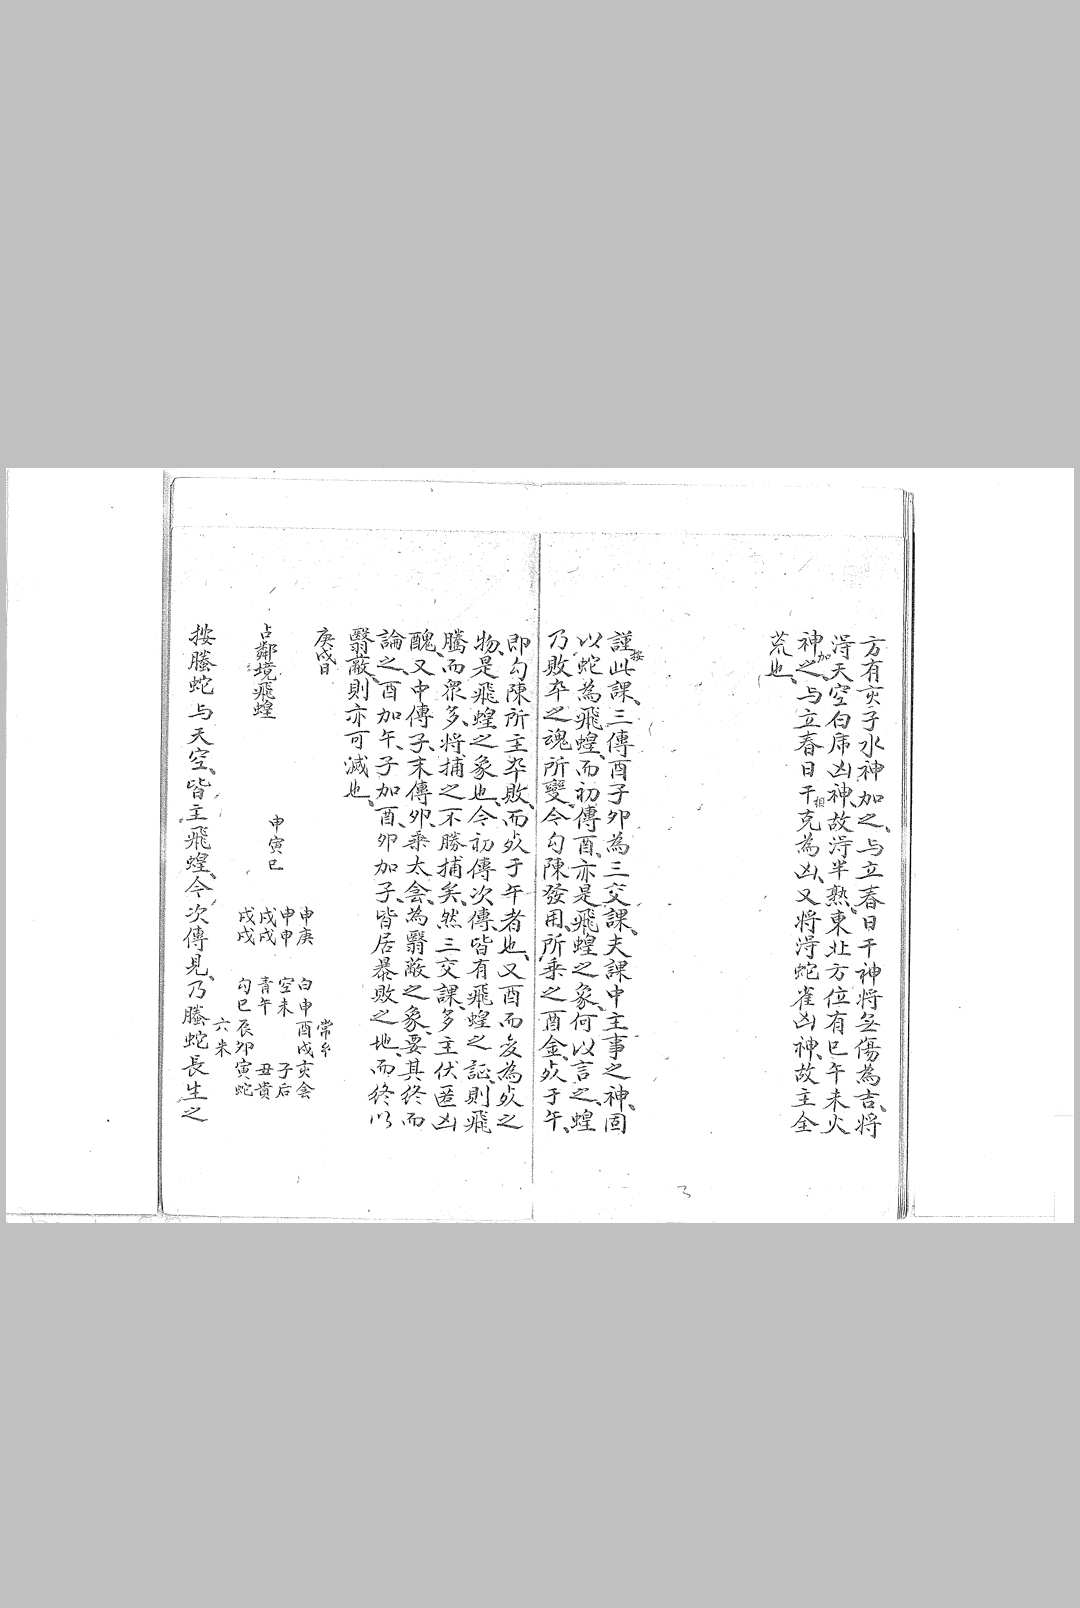 方有亥子水神加之、与立春日干神将無傷為吉、将
淂天空白虎凶神故淂半熟、東北方位有巳午未火
神加之、与立春日干相克為凶、又将淂蛇雀凶神、故主全
荒也、
謹按此課、三傳酉子卯為三交課、夫課中主事之神、固
以蛇為飛蝗、而初傳酉、亦是飛蝗之象、何以言之、蝗
乃敗卒之魂所變、今勾陳發用、所乘之酉金、死于午、
即勾陳所主卒敗、而死于午者也、又酉而変為死之
物、是飛蝗之象也、今初傳次傳皆有飛蝗之証、則飛
騰而衆多、将捕之不勝捕矣、然三交課、多主伏匿凶
醜、又中傳子、末傳卯、乘太侌、為翳蔽之象、要其終而
論之、酉加午、子加酉、卯加子、皆居暴敗之地、而終以
翳蔽則亦可滅也、
庚戌日
占鄰境飛蝗
申寅巳
申庚
申申
戌戌
戌戌
常
白申酉戌亥侌
空未 子后
青午 丑貴
勾巳辰卯寅蛇
六朱
按螣蛇与天空、皆主飛蝗、今次傳見、乃螣蛇長生之
3